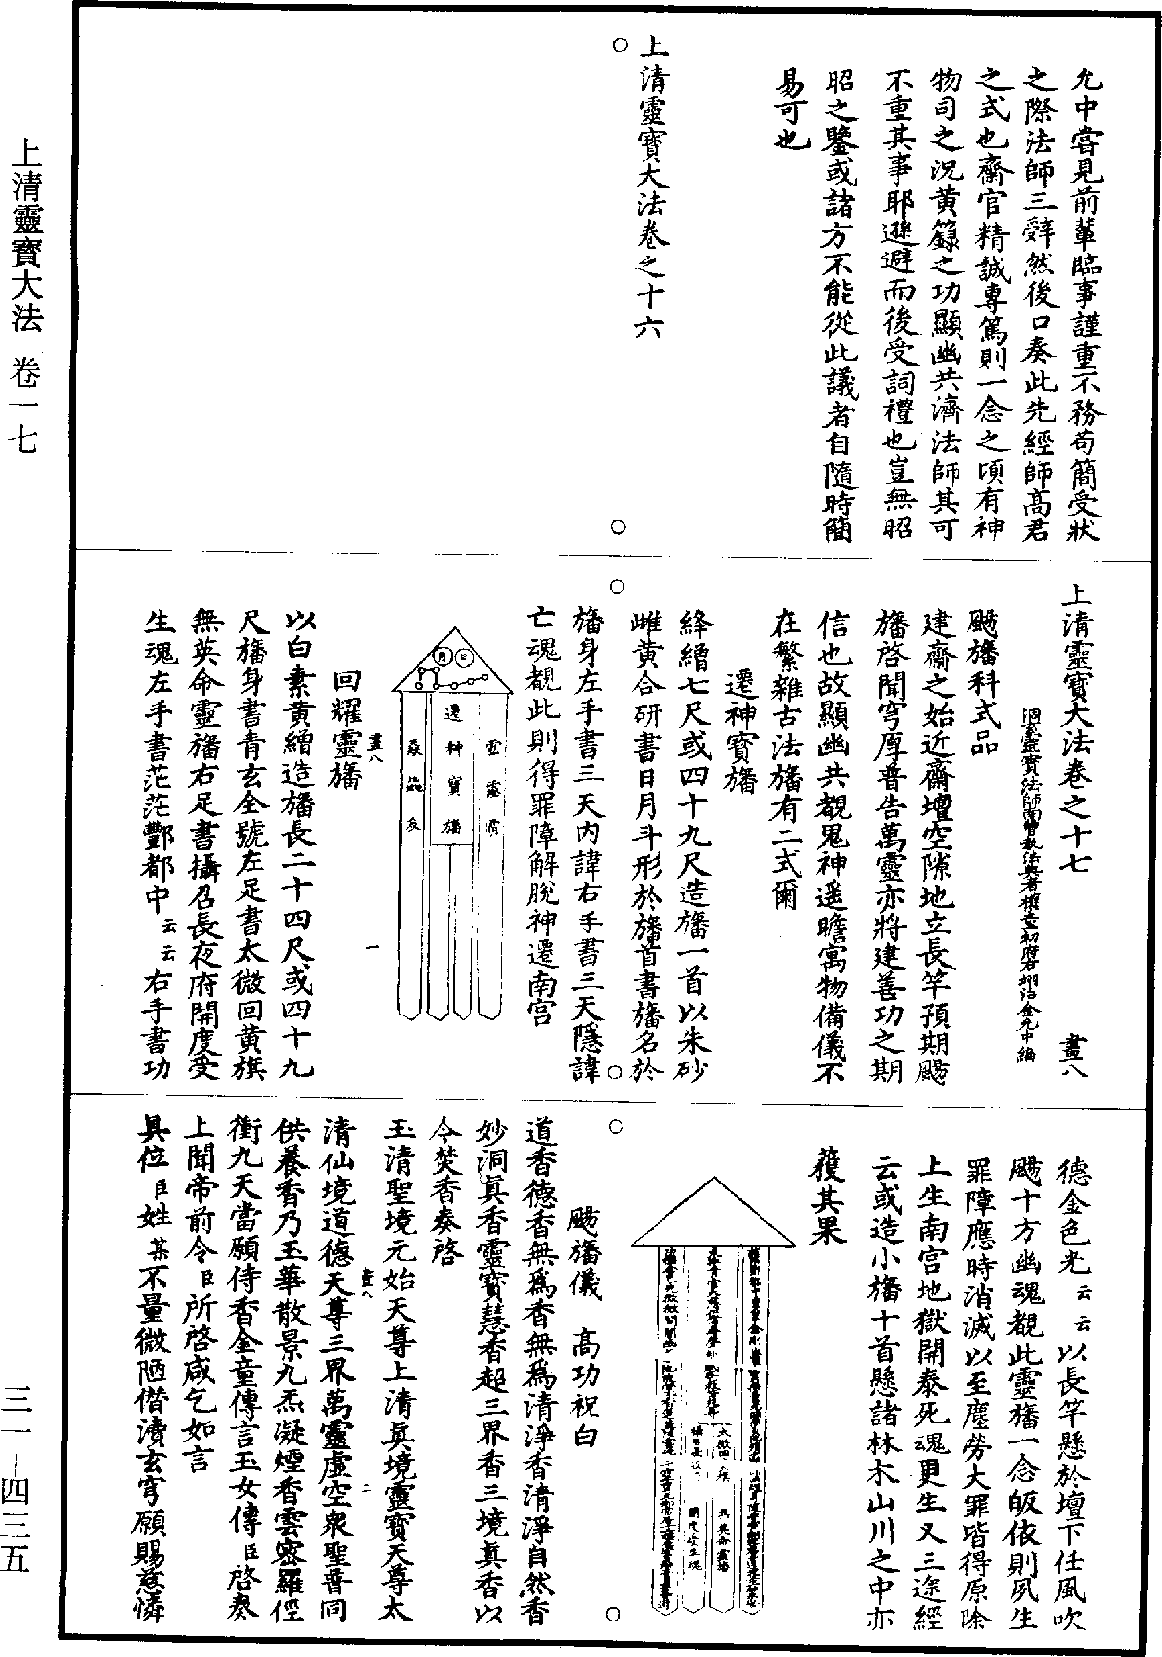 上清靈寶大法 卷一七
三一—四三五
允中嘗見前輩臨事謹重不務苟簡受狀
之際法師三辭然後口奏此先經師高君
之式也齋官精誠專篤則一念之頃有神
物司之況黃籙之功顯幽共濟法師其可
不重其事耶遜避而後受詞禮也豈無昭
昭之鑒或諸方不能從此議者自隨時簡
易可也
上清靈寶大法卷之十六
上清靈寶大法卷之十七 畫八
洞玄靈寶法師南曹執法典者權童初府右翊治金允中編
颺旛科式品
建齋之始近齋壇空隙地立長竿預期颺
旛啓聞穹厚普告萬靈亦將建善功之期
信也故顯幽共覩鬼神遥瞻寓物備儀不
在繁雜古法旛有二式爾
遷神寶旛
絳繒七尺或四十九尺造旛一首以朱砂
雌黃合研書日月斗形於旛首書旛名於
旛身左手書三天內諱右手書三天隱諱
亡魂覩此則得罪障解脫神遷南宫
月 日
遷神寶旛
畫八 一
回耀靈旛
以白素黃繒造旛長二十四尺或四十九
尺旛身書青玄全號左足書太微回黃旗
無英命靈旛右足書攝召長夜府開度受
生魂左手書茫茫酆都中云云右手書功
德金色光云云以長竿懸於壇下任風吹
颺十方幽魂覩此靈旛一念皈依則夙生
罪障應時消滅以至塵勞大罪皆得原除
上生南宫地獄開泰死魂更生又三途經
云或造小旛十首懸諸林木山川之中亦
獲其果
颺旛儀 高功祝白
道香德香無爲香無爲清淨香清淨自然香
妙洞真香靈寶慧香超三界香三境真香以
令焚香奏啓
玉清聖境元始天尊上清真境靈寶天尊太
清仙境道德天尊三界萬靈虛空衆聖普同
畫八 二
供養香乃玉華散景九炁凝煙香雲密羅徑
衝九天當願侍香金童傳言玉女傳臣啓奏
上聞帝前令臣所啓咸乞如言
具位臣姓某不量微陋僭瀆玄穹願賜慈憐